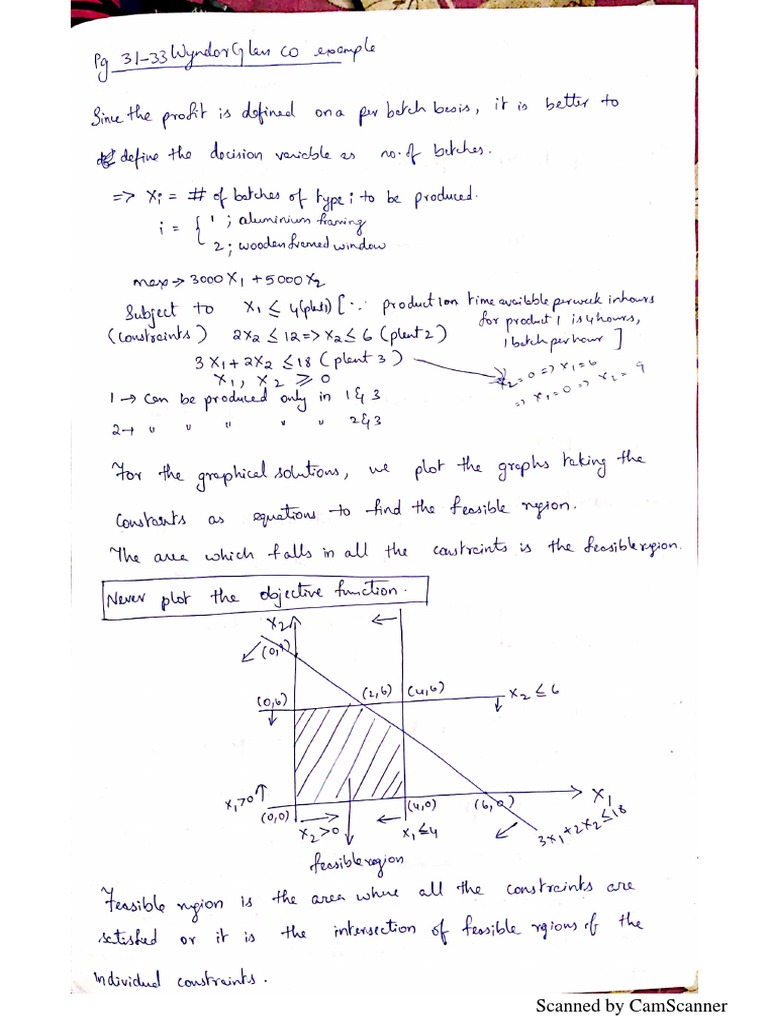 Pg 31-33 Wyndor Glass co example
Since the profit is defined on a per batch basis, it is better to
define the decision variable as no. of batches.
=> Xi = # of batches of type i to be produced.
i = { 1 ; aluminium framing
2 ; wooden framed window
max → 3000X1 + 5000X2
Subject to X1 ≤ 4 (plant 1) [∵ production time available per week in hours
(constraints) 2X2 ≤ 12 => X2 ≤ 6 (plant 2) for product 1 is 4 hours,
1 batch per hour]
3X1 + 2X2 ≤ 18 (plant 3) → X2 = 0 => X1 = 6
X1, X2 ≥ 0 => X1 = 0 => X2 = 9
1 → Can be produced only in 1 & 3
2 → " " " " " 2 & 3
For the graphical solutions, we plot the graphs taking the
constaints as equations to find the feasible region.
The area which falls in all the constraints is the feasible region.
Never plot the objective function.
X2
(0,9)
(0,6) (2,6) (4,6) X2 ≤ 6
X1>0 (0,0) (4,0) (6,0) X1
X2>0 X1 ≤ 4 3X1+2X2 ≤ 18
feasible region
Feasible region is the area where all the constraints are
satisfied or it is the intersection of feasible regions of the
individual constraints.
Scanned by CamScanner